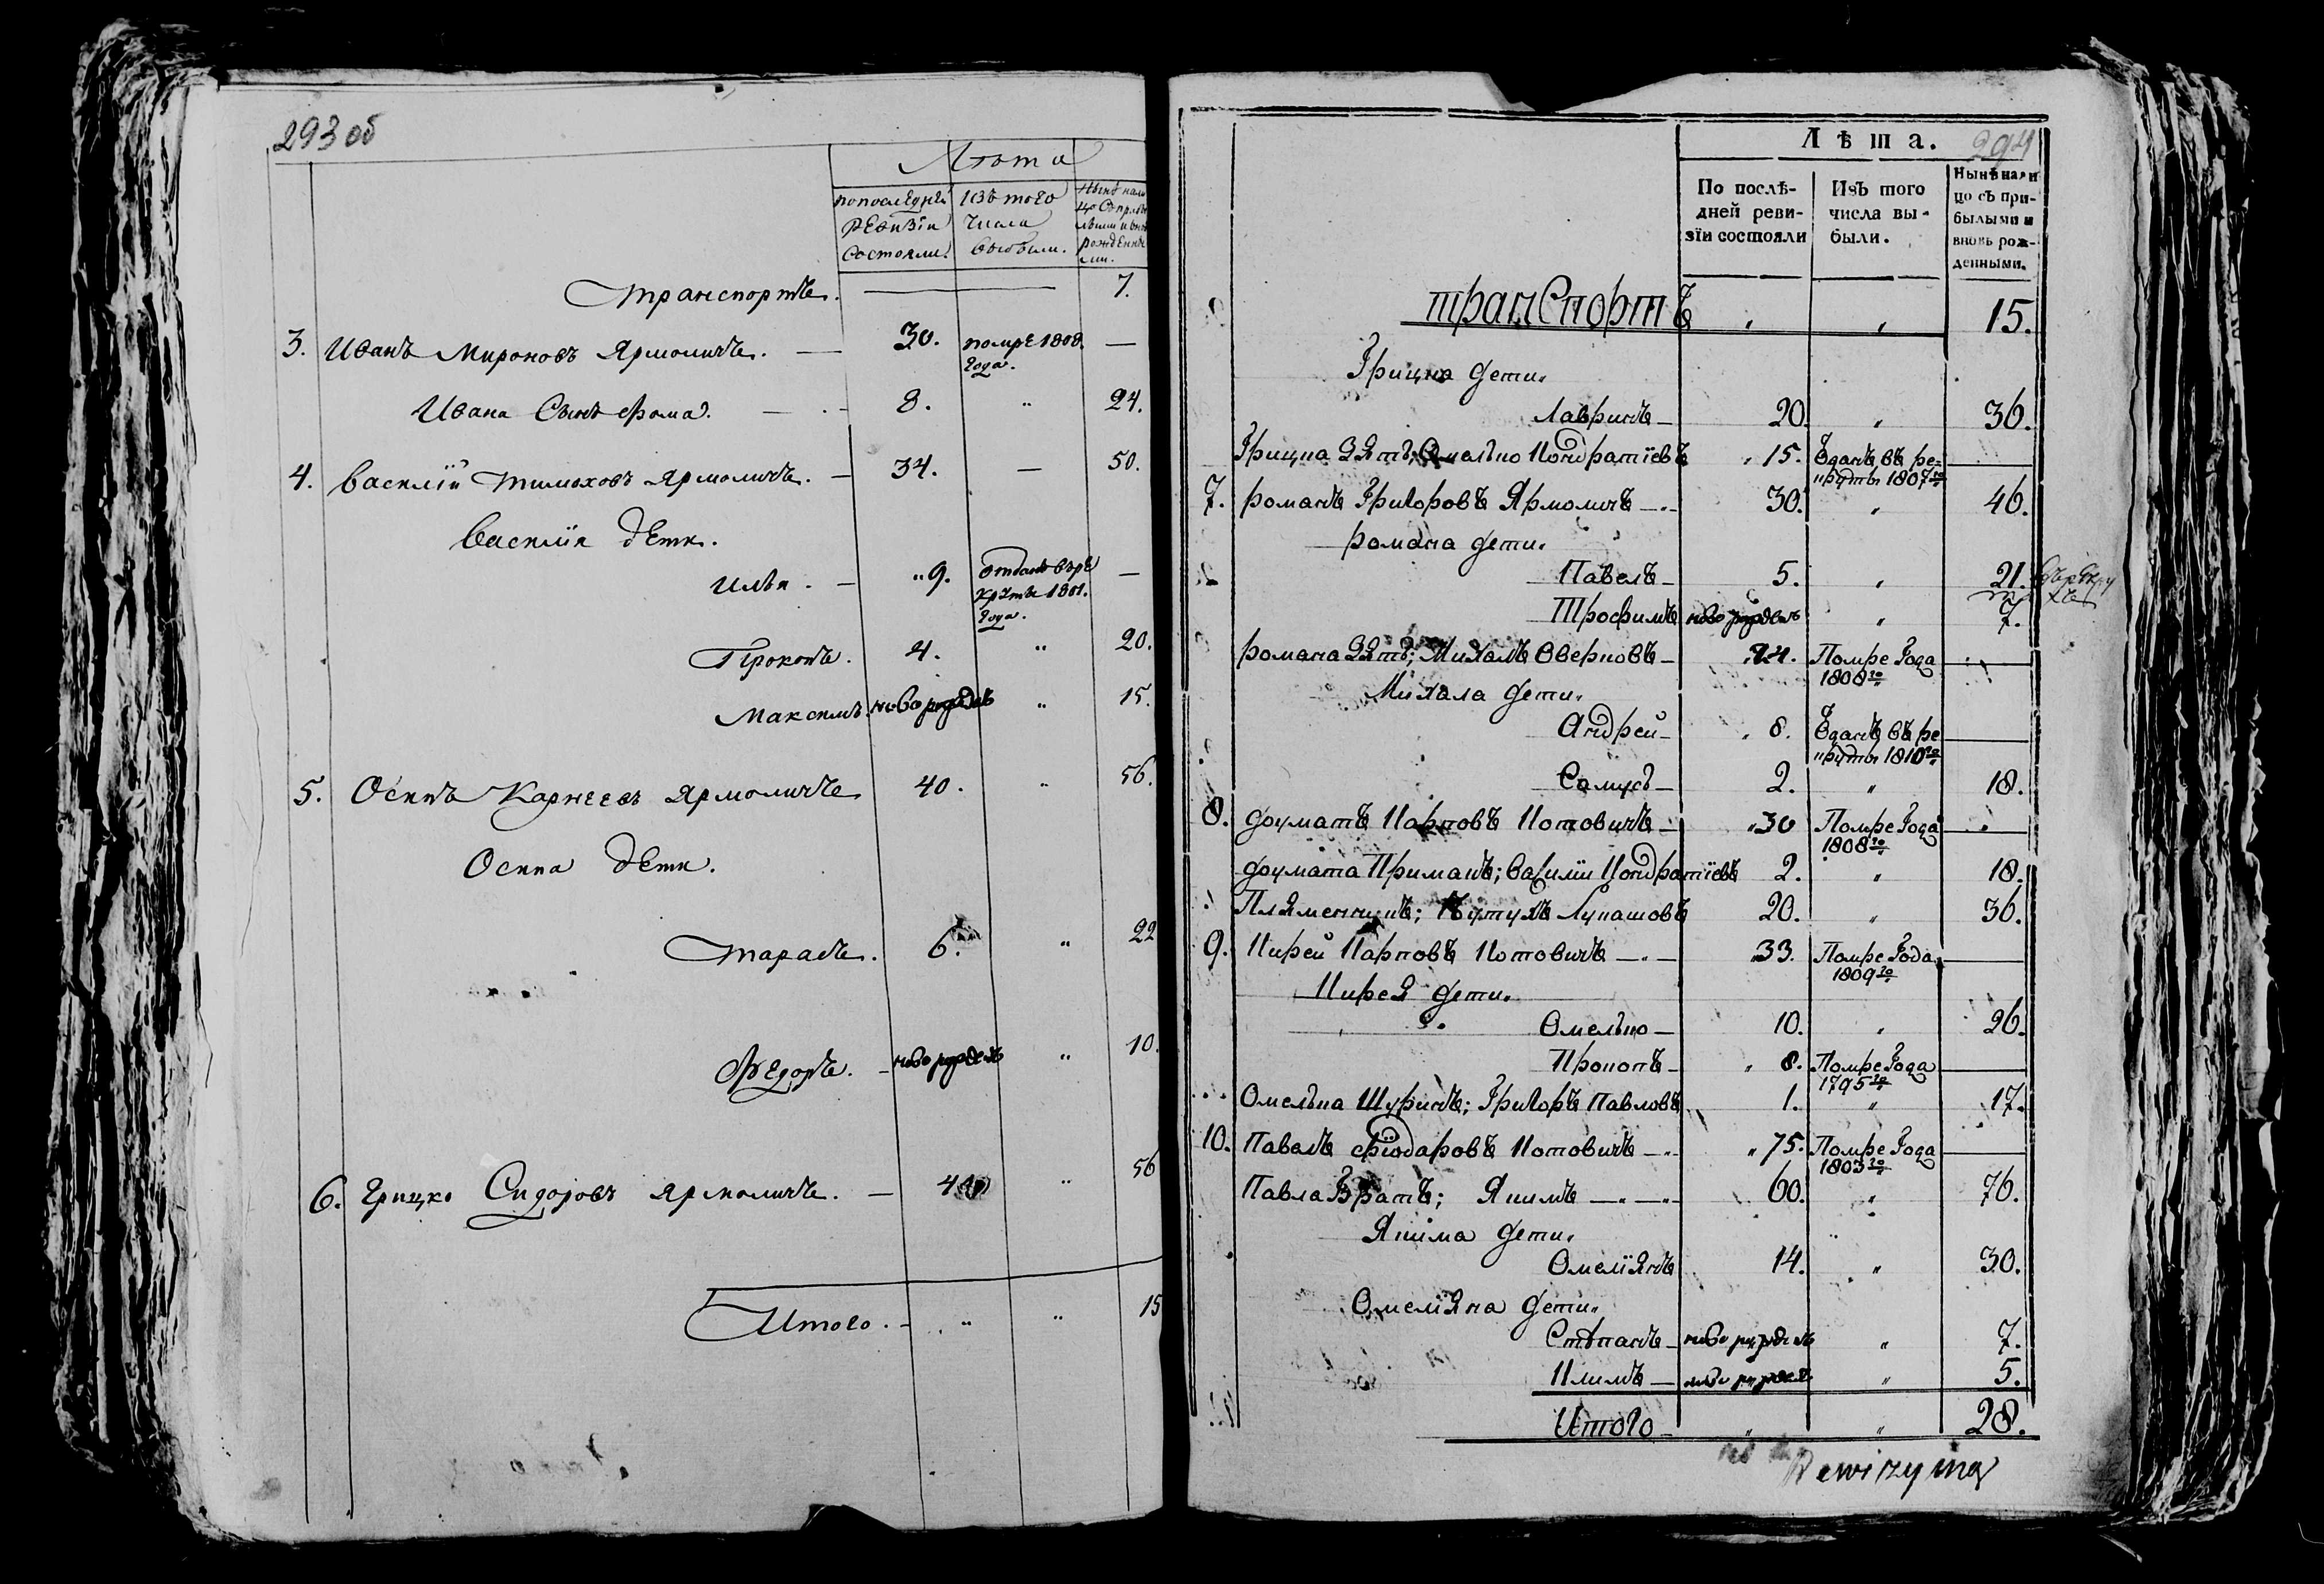 293 об
Лѣта
по последней ревизіи состояли
изъ того числа выбыли.
транспортъ. 7.
3. Иванъ Мироновъ Ярмоличъ. — 30. помре 1808. года. —
Ивана Сынъ Фома. — 8. " 24.
4. Василій Тимоховъ Ярмоличъ. — 34. — 50.
Василія дети.
Илья. — "9. отданъ въ ре
круты 1801. года. —
Прокопъ. 4. " 20.
Максимъ. ново рожденъ " 15.
5. Осипъ Карнеевъ Ярмоличъ 40. " 56.
Осипа дети.
Тарасъ. 6. " 22
Федоръ. — ново рожденъ " 10.
6. Грицко Сидоровъ Ярмоличъ. — 40 " 56
Итого. — " " 15
294
Лѣта.
По послѣ-
дней реви-
зіи состояли
Изъ того
числа вы-
были.
Нынѣ нали
цо съ при-
былыми и
вновь рож-
денными.
транспортъ " " 15.
Грицка дети.
Лавринъ — 20. " 36.
Грицка Зять; Омелько Кондратіевъ " 15. Ѣданъ въ ре=
круты 1807го
7. романъ Григоровъ Ярмоличъ — 30. " 46.
романа дети.
Павелъ — 5. " 21.
Трофимъ ново рожденъ " 7.
романа Зять; Михалъ Оверковъ — 24. Помре Года
1808го
Михала дети.
Андрей — " 8. Ѣданъ въ ре
круты 1810го
Самусь — 2. " 18.
8. доуматъ Карповъ Котовичъ — " 30 Помре Года
1808го
доумата Приманъ; Василій Кондратіевъ 2. " 18.
Пляменникъ; Лукашовъ 20. " 36.
9. Кирей Карповъ Котовичъ — 33. Помре Года
1809го
Кирея дети.
Омелько — 10. " 26.
Прокопъ — " 8. Помре Года
1795го
Омелька Шуринъ; Григоръ Павловъ 1. " 17.
10. Павелъ Фіодаровъ Котовичъ — " 75. Помре Года
1803го
Павла Братъ; Якимъ — 60. " 76.
Якима дети.
Омеліянъ 14. " 30.
Омеліяна дети.
Стѣпанъ — ново рожденъ " 7.
Климъ — ново рожденъ " 5.
Итого — " " 28.